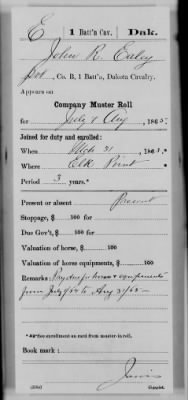 E | 1 Batt'n Cav. | Dak.
John R. Ealey
Pvt., Co. B, 1 Batt'n, Dakota Cavalry.
Appears on
Company Muster Roll
for July & Aug, 1865.
Joined for duty and enrolled:
When Mch 31, 186
Where Elk Point
Period 3 years.*
Present or absent Present
Stoppage, $ 100 for
Due Gov't, $ 100 for
Valuation of horse, $ 100
Valuation of horse equipments, $ 100
Remarks: Pay due for horse & equipments
from July to Aug 31/65
*See enrollment on card from muster-in roll.
Book mark:
Copyist.